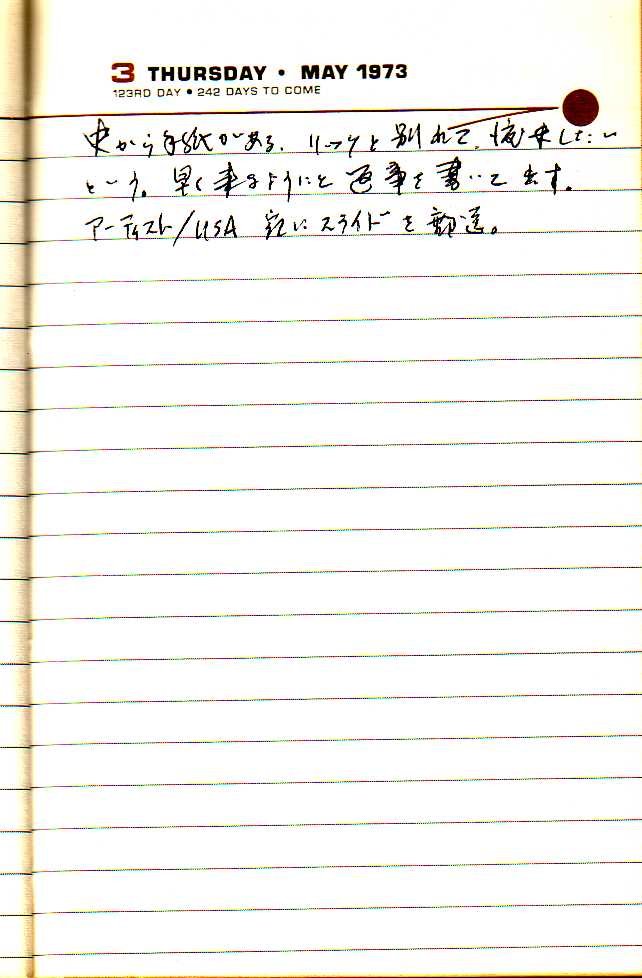 3 THURSDAY • MAY 1973
123RD DAY • 242 DAYS TO COME
史から手紙がある。リックと別れて、復来したい
という。早く来るようにと返事を書いて出す。
アーティスト/USA 宛にスライドを郵送。